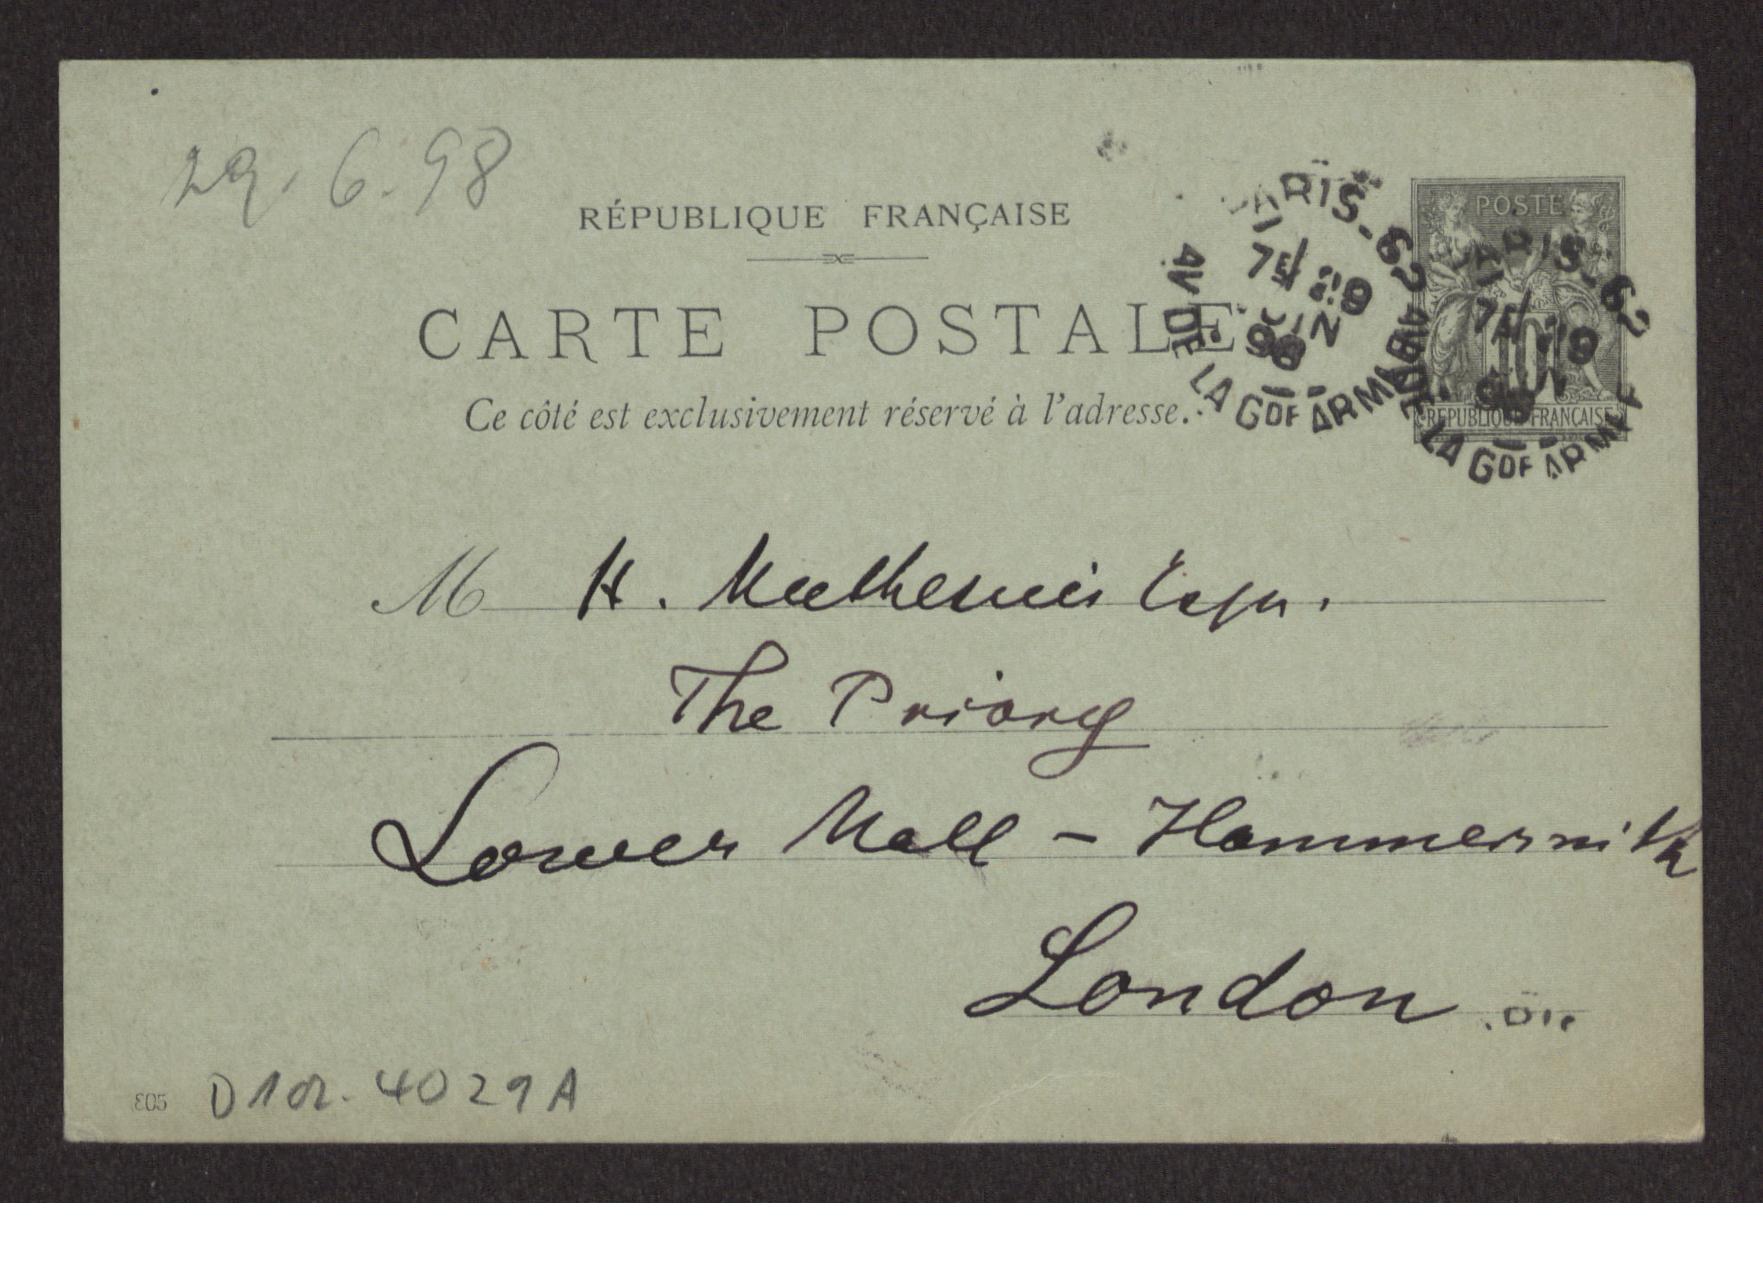 29.6.98
RÉPUBLIQUE FRANÇAISE
CARTE POSTALE
Ce côté est exclusivement réservé à l'adresse.
PARIS-62
7E 29
JUIN
98
AV DE LA GDE ARMÉE
POSTE
10
REPUBLIQUE FRANÇAISE
PARIS-62
7E 29
JUIN
98
AV DE LA GDE ARMÉE
M H. Muthesius Esqu.
The Priory
Lower Mall - Hammersmith
London
E05
D102-4029A